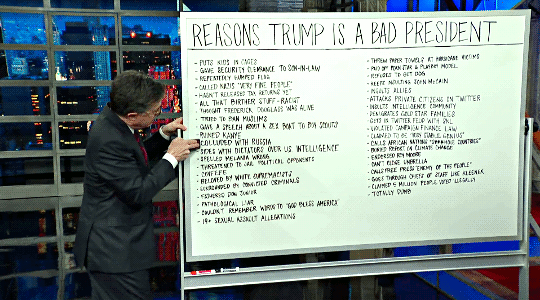 REASONS TRUMP IS A BAD PRESIDENT
- PUTS KIDS IN CAGES
- GAVE SECURITY CLEARANCE TO SON-IN-LAW
- REPEATEDLY HUMPED FLAG
- CALLED NAZIS "VERY FINE PEOPLE"
- HASN'T RELEASED TAX RETURNS YET
- ALL THAT BIRTHER STUFF - RACIST
- THOUGHT FREDERICK DOUGLASS WAS ALIVE
- TRIED TO BAN MUSLIMS
- GAVE A SPEECH ABOUT A SEX BOAT TO BOY SCOUTS
- RUINED KANYE
- COLLUDED WITH RUSSIA
- SIDES WITH DICTATORS OVER US INTELLIGENCE
- SPELLED MELANIA WRONG
- THREATENED TO JAIL POLITICAL OPPONENTS
- COVFEFE
- BELOVED BY WHITE SUPREMACISTS
- SURROUNDED BY CONVICTED CRIMINALS
- FATHERED DON JUNIOR
- PATHOLOGICAL LIAR
- COULDN'T REMEMBER WORDS TO "GOD BLESS AMERICA"
- 19+ SEXUAL ASSAULT ALLEGATIONS
- THREW PAPER TOWELS AT HURRICANE VICTIMS
- PAID OFF PORN STAR & PLAYBOY MODEL
- REFUSES TO GET DOG
- KEEPS INSULTING JOHN McCAIN
- INSULTS ALLIES
- ATTACKS PRIVATE CITIZENS ON TWITTER
- INSULTS INTELLIGENCE COMMUNITY
- DENIGRATES GOLD STAR FAMILIES
- GETS IN TWITTER FEUD WITH SNL
- VIOLATED CAMPAIGN FINANCE LAW
- CLAIMED TO BE "VERY STABLE GENIUS"
- CALLS AFRICAN NATIONS COUNTRIES"
- BURIED REPORT ON CLIMATE CHANGE
- ENDORSED ROY MOORE
- CAN'T CLOSE UMBRELLA
- CALLS FREE PRESS "ENEMY OF THE PEOPLE"
- GOES THROUGH CHIEFS OF STAFF LIKE KLEENEX
- CLAIMED MILLION PEOPLE VOTED ILLEGALLY
- TOTALLY DUMB